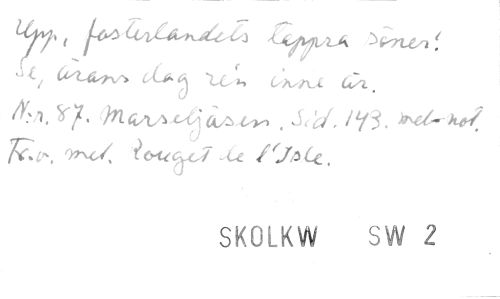 Upp, fosterlandets tappra söner!
Se, ärans dag re'n inne är.
N:r. 87. Marseljäsen. Sid. 143. mel-not.
Fr.o. mel. Rouget de l'Isle.
SKOLKW SW 2